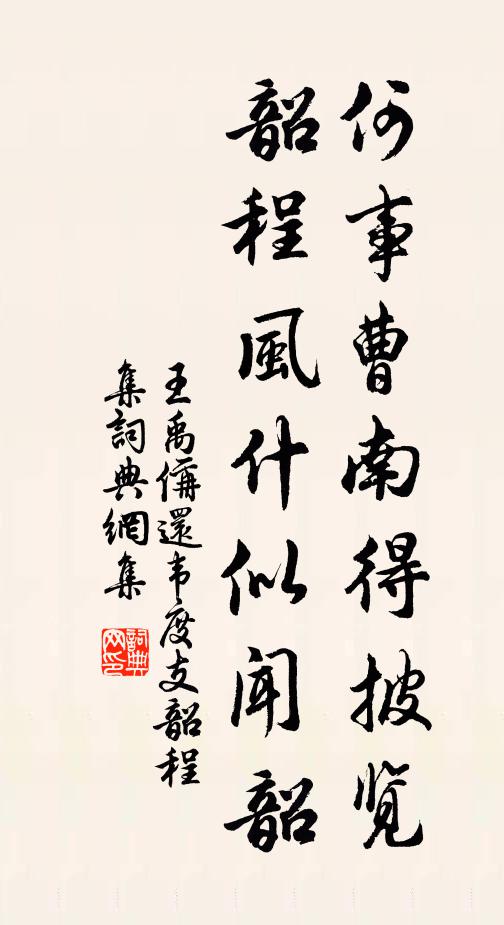 何事曹南得披览
韶程風什似聞韶
王禹偁還韦度支韶程
集詞典網集
詞典网印